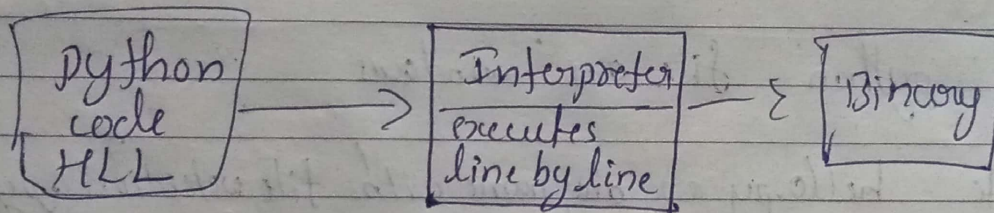 Python
code
HLL
Interpreter
executes
line by line
Binary